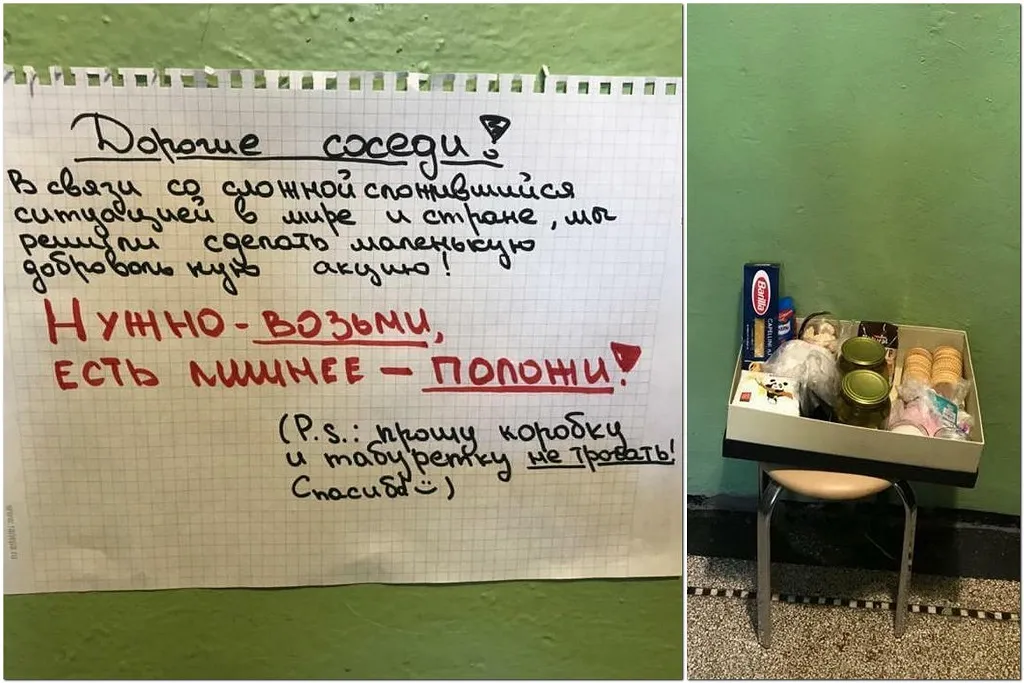 Дорогие соседи!
В связи со сложной сложившийся
ситуацией в мире и стране, мы
решили сделать маленькую
добровольную акцию!
Нужно - возьми,
есть лишнее - положи!
(P.s.: прошу коробку
и табуретку не трогать!
Спасибо)
Barilla
CAPELLINI